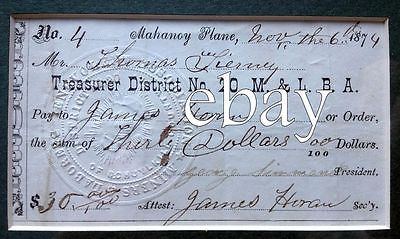 No. 4 Mahanoy Plane, Nov. the 6 1874
Mr. Thomas Tierney
Treasurer District No. 20 M. & L. B. A.
Pay to James Horan or Order,
the sum of Thirty Dollars 00/100 Dollars.
George Simmons President.
$30 00/100 Attest: James Horan Sec'y.
ebay